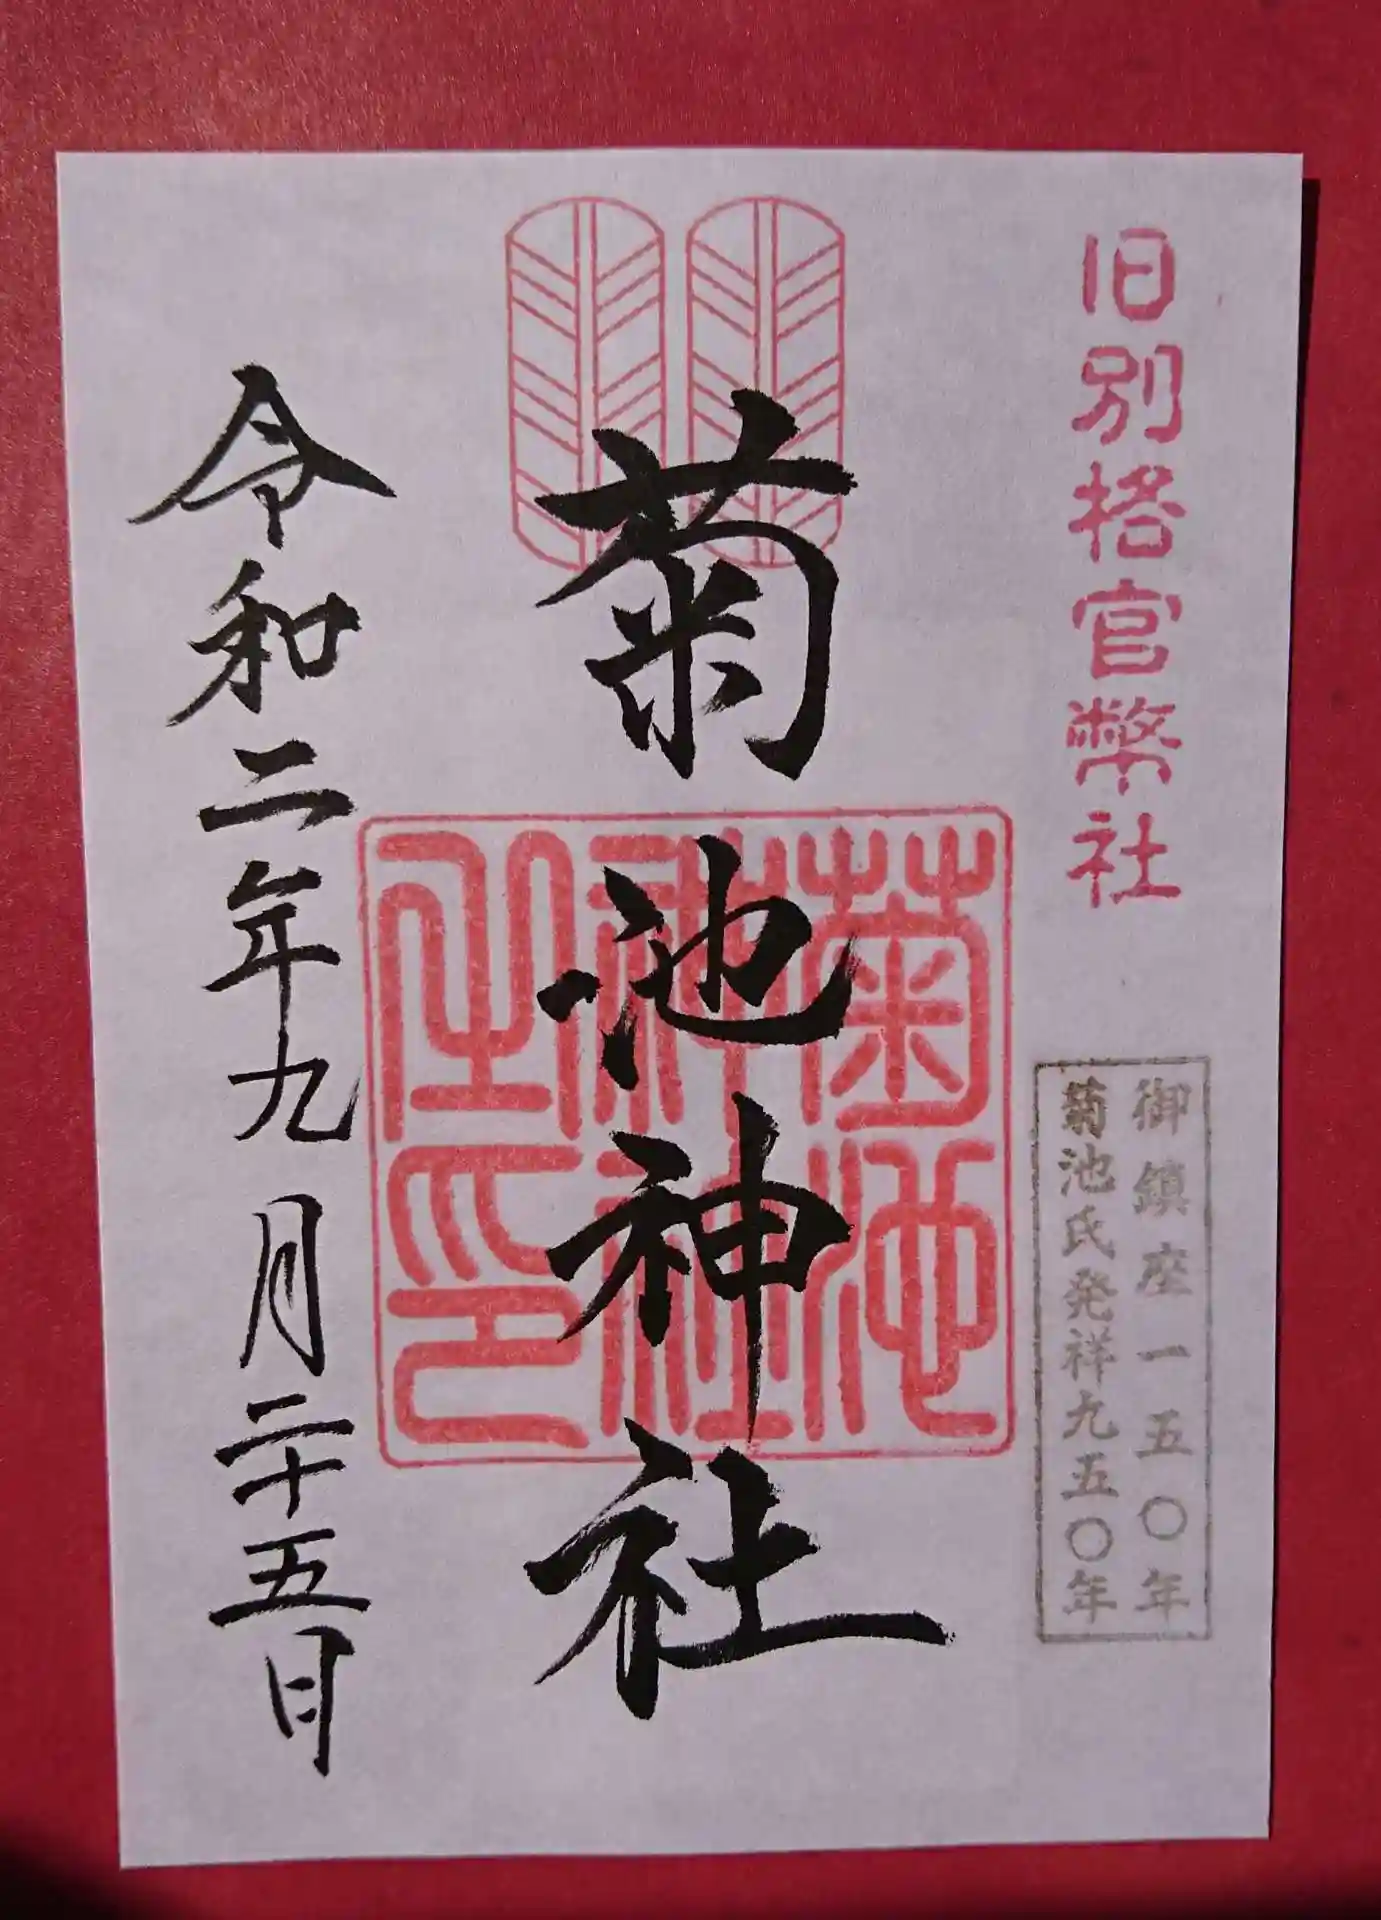 旧別格官幣社
御鎮座一五〇年
菊池氏発祥九五〇年
菊池神社
菊池
神社
之印
令和二年九月二十五日